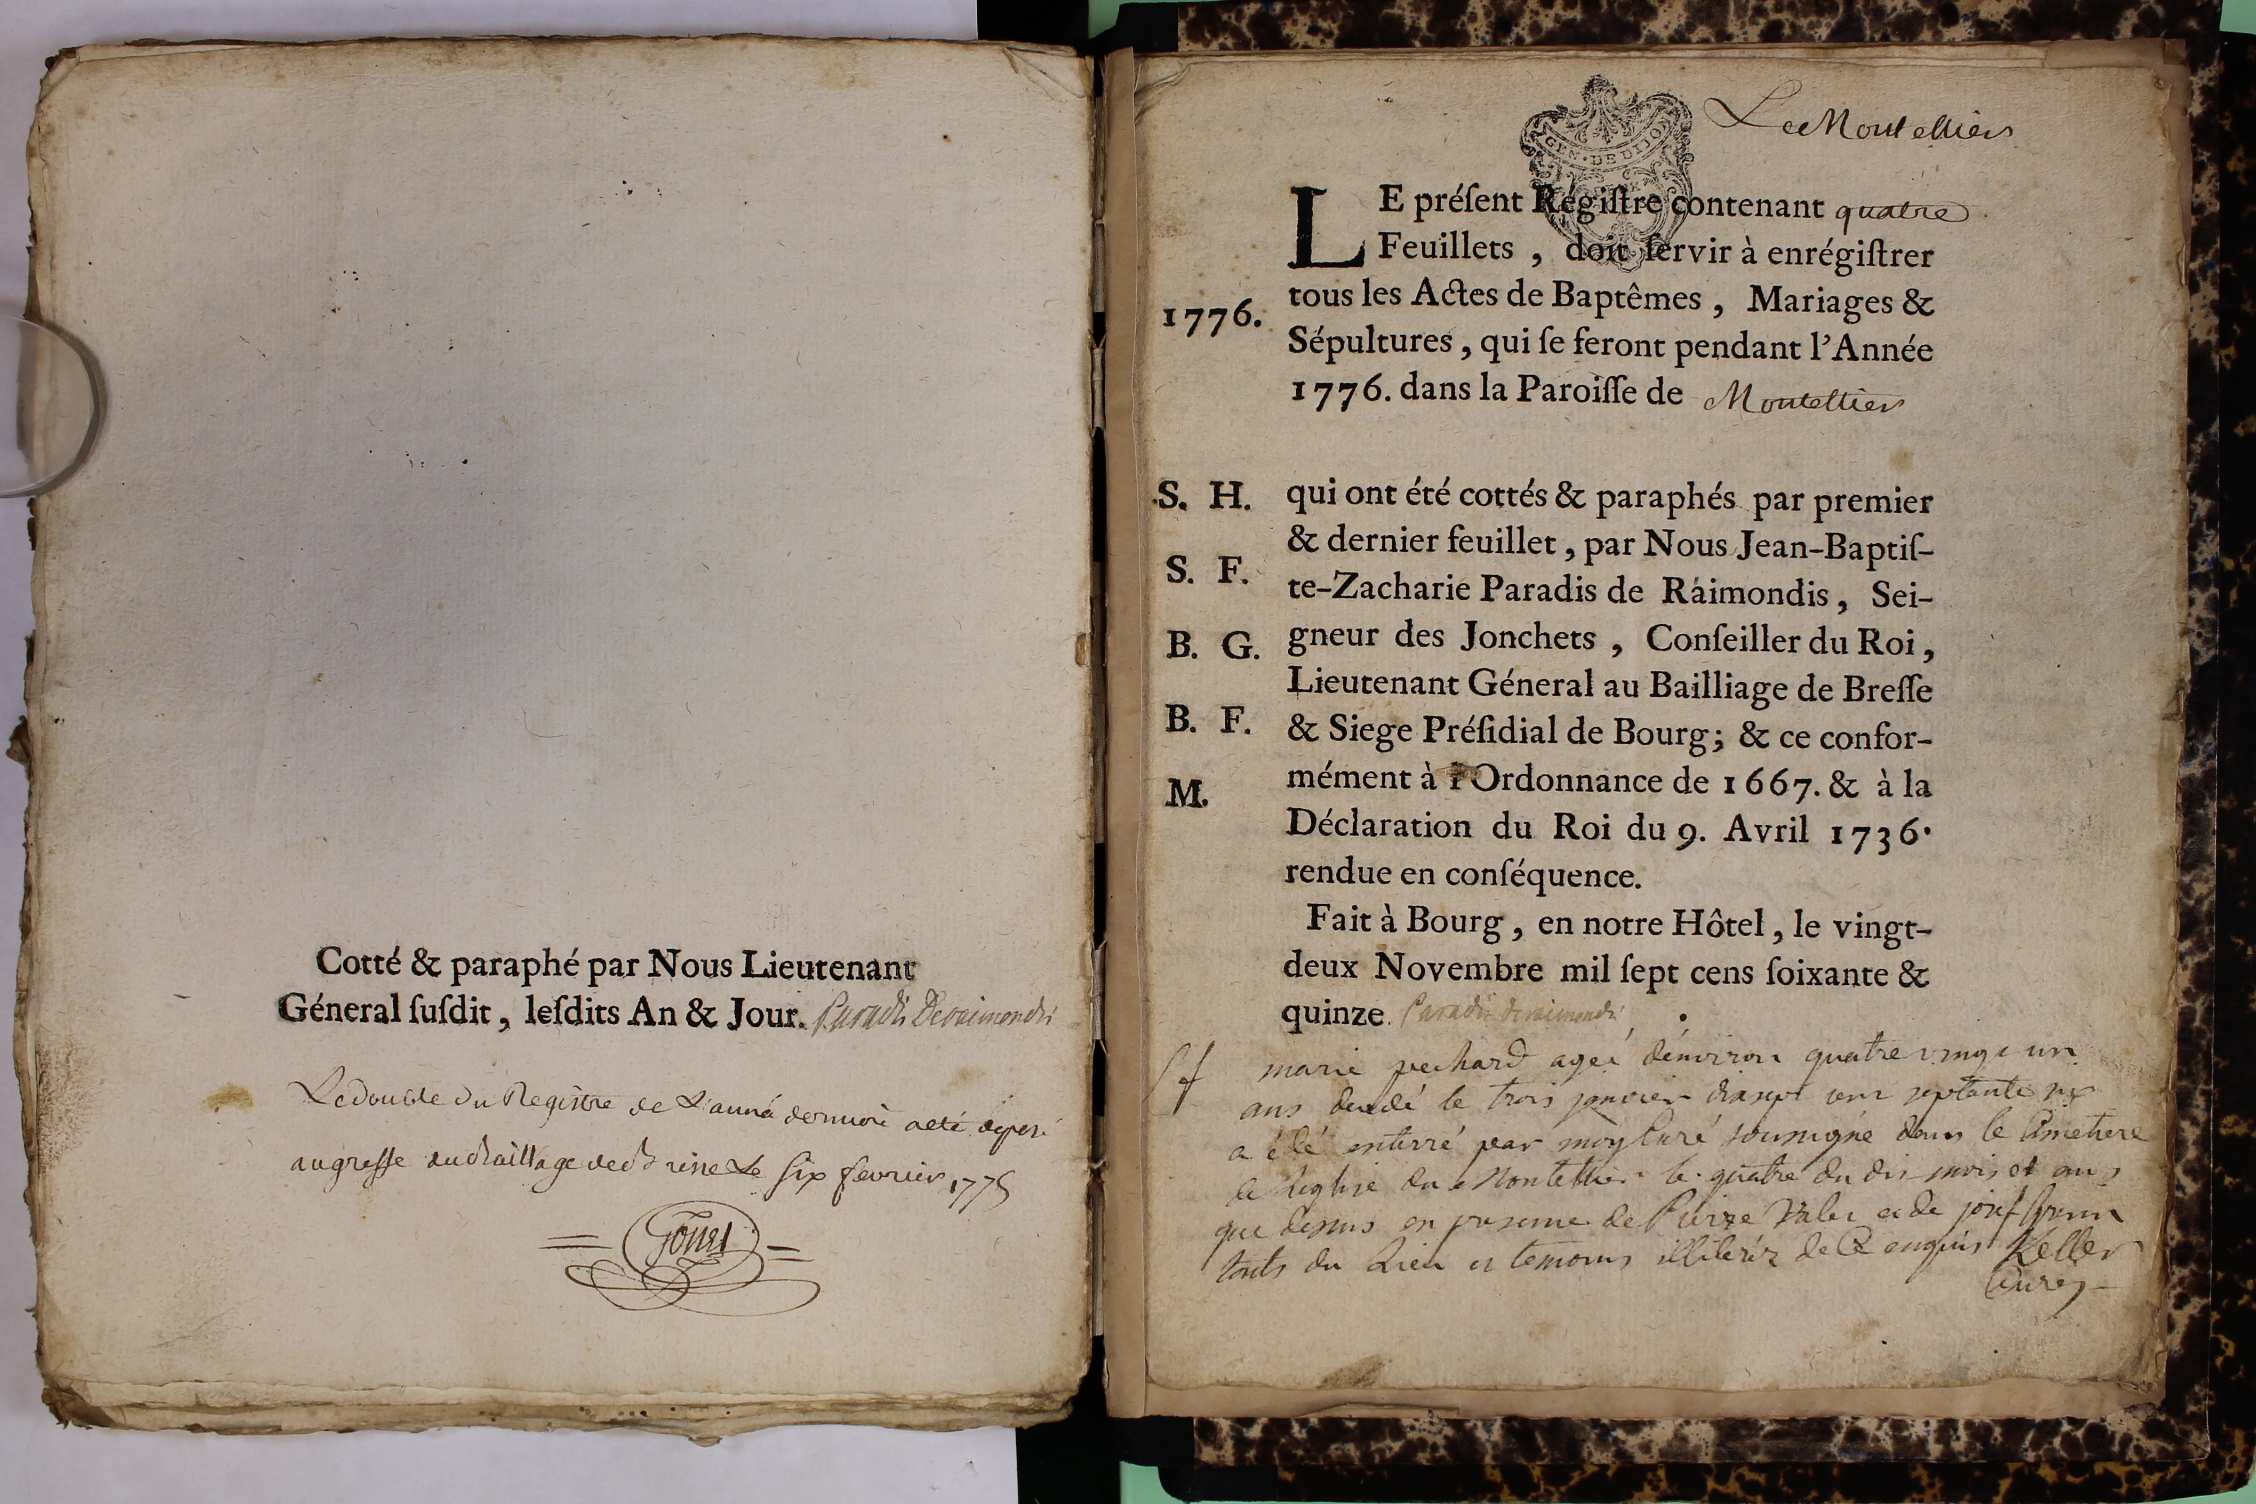 Cotté & paraphé par Nous Lieutenant
Géneral ſuſdit, leſdits An & Jour. Paradis Deraimondis
Le double du Registre de L'anné derniere a eté deposé
au greffe du Bailliage de Bresse Le six fevrier 1775
GEN. DE DIJON
Le Montelliers
LE préſent Régiſtre contenant quatre
Feuillets, doit ſervir à enrégiſtrer
tous les Actes de Baptêmes, Mariages &
1776.
Sépultures, qui ſe feront pendant l'Année
1776. dans la Paroiſſe de Montelliers
S. H. qui ont été cottés & paraphés par premier
& dernier feuillet, par Nous Jean-Baptiſ-
S. F. te-Zacharie Paradis de Raimondis, Sei-
B. G. gneur des Jonchets, Conſeiller du Roi,
Lieutenant Géneral au Bailliage de Breſſe
B. F. & Siege Préſidial de Bourg; & ce confor-
mément à l'Ordonnance de 1667. & à la
M.
Déclaration du Roi du 9. Avril 1736.
rendue en conſéquence.
Fait à Bourg, en notre Hôtel, le vingt-
deux Novembre mil ſept cens ſoixante &
quinze. Paradis Deraimondis
Sf marie pechard ageé d'environ quatre vingt un
ans decedé le trois janvier septante six
a été enterré par moy Curé soussigné dans le Cimetiere
de l'eglise du Montellier le quatre du dis mois et ans
que dessus en presence de Pierre et de josef
touts du Lieu et temoins illiteréz de ce enquis Keller
Curé